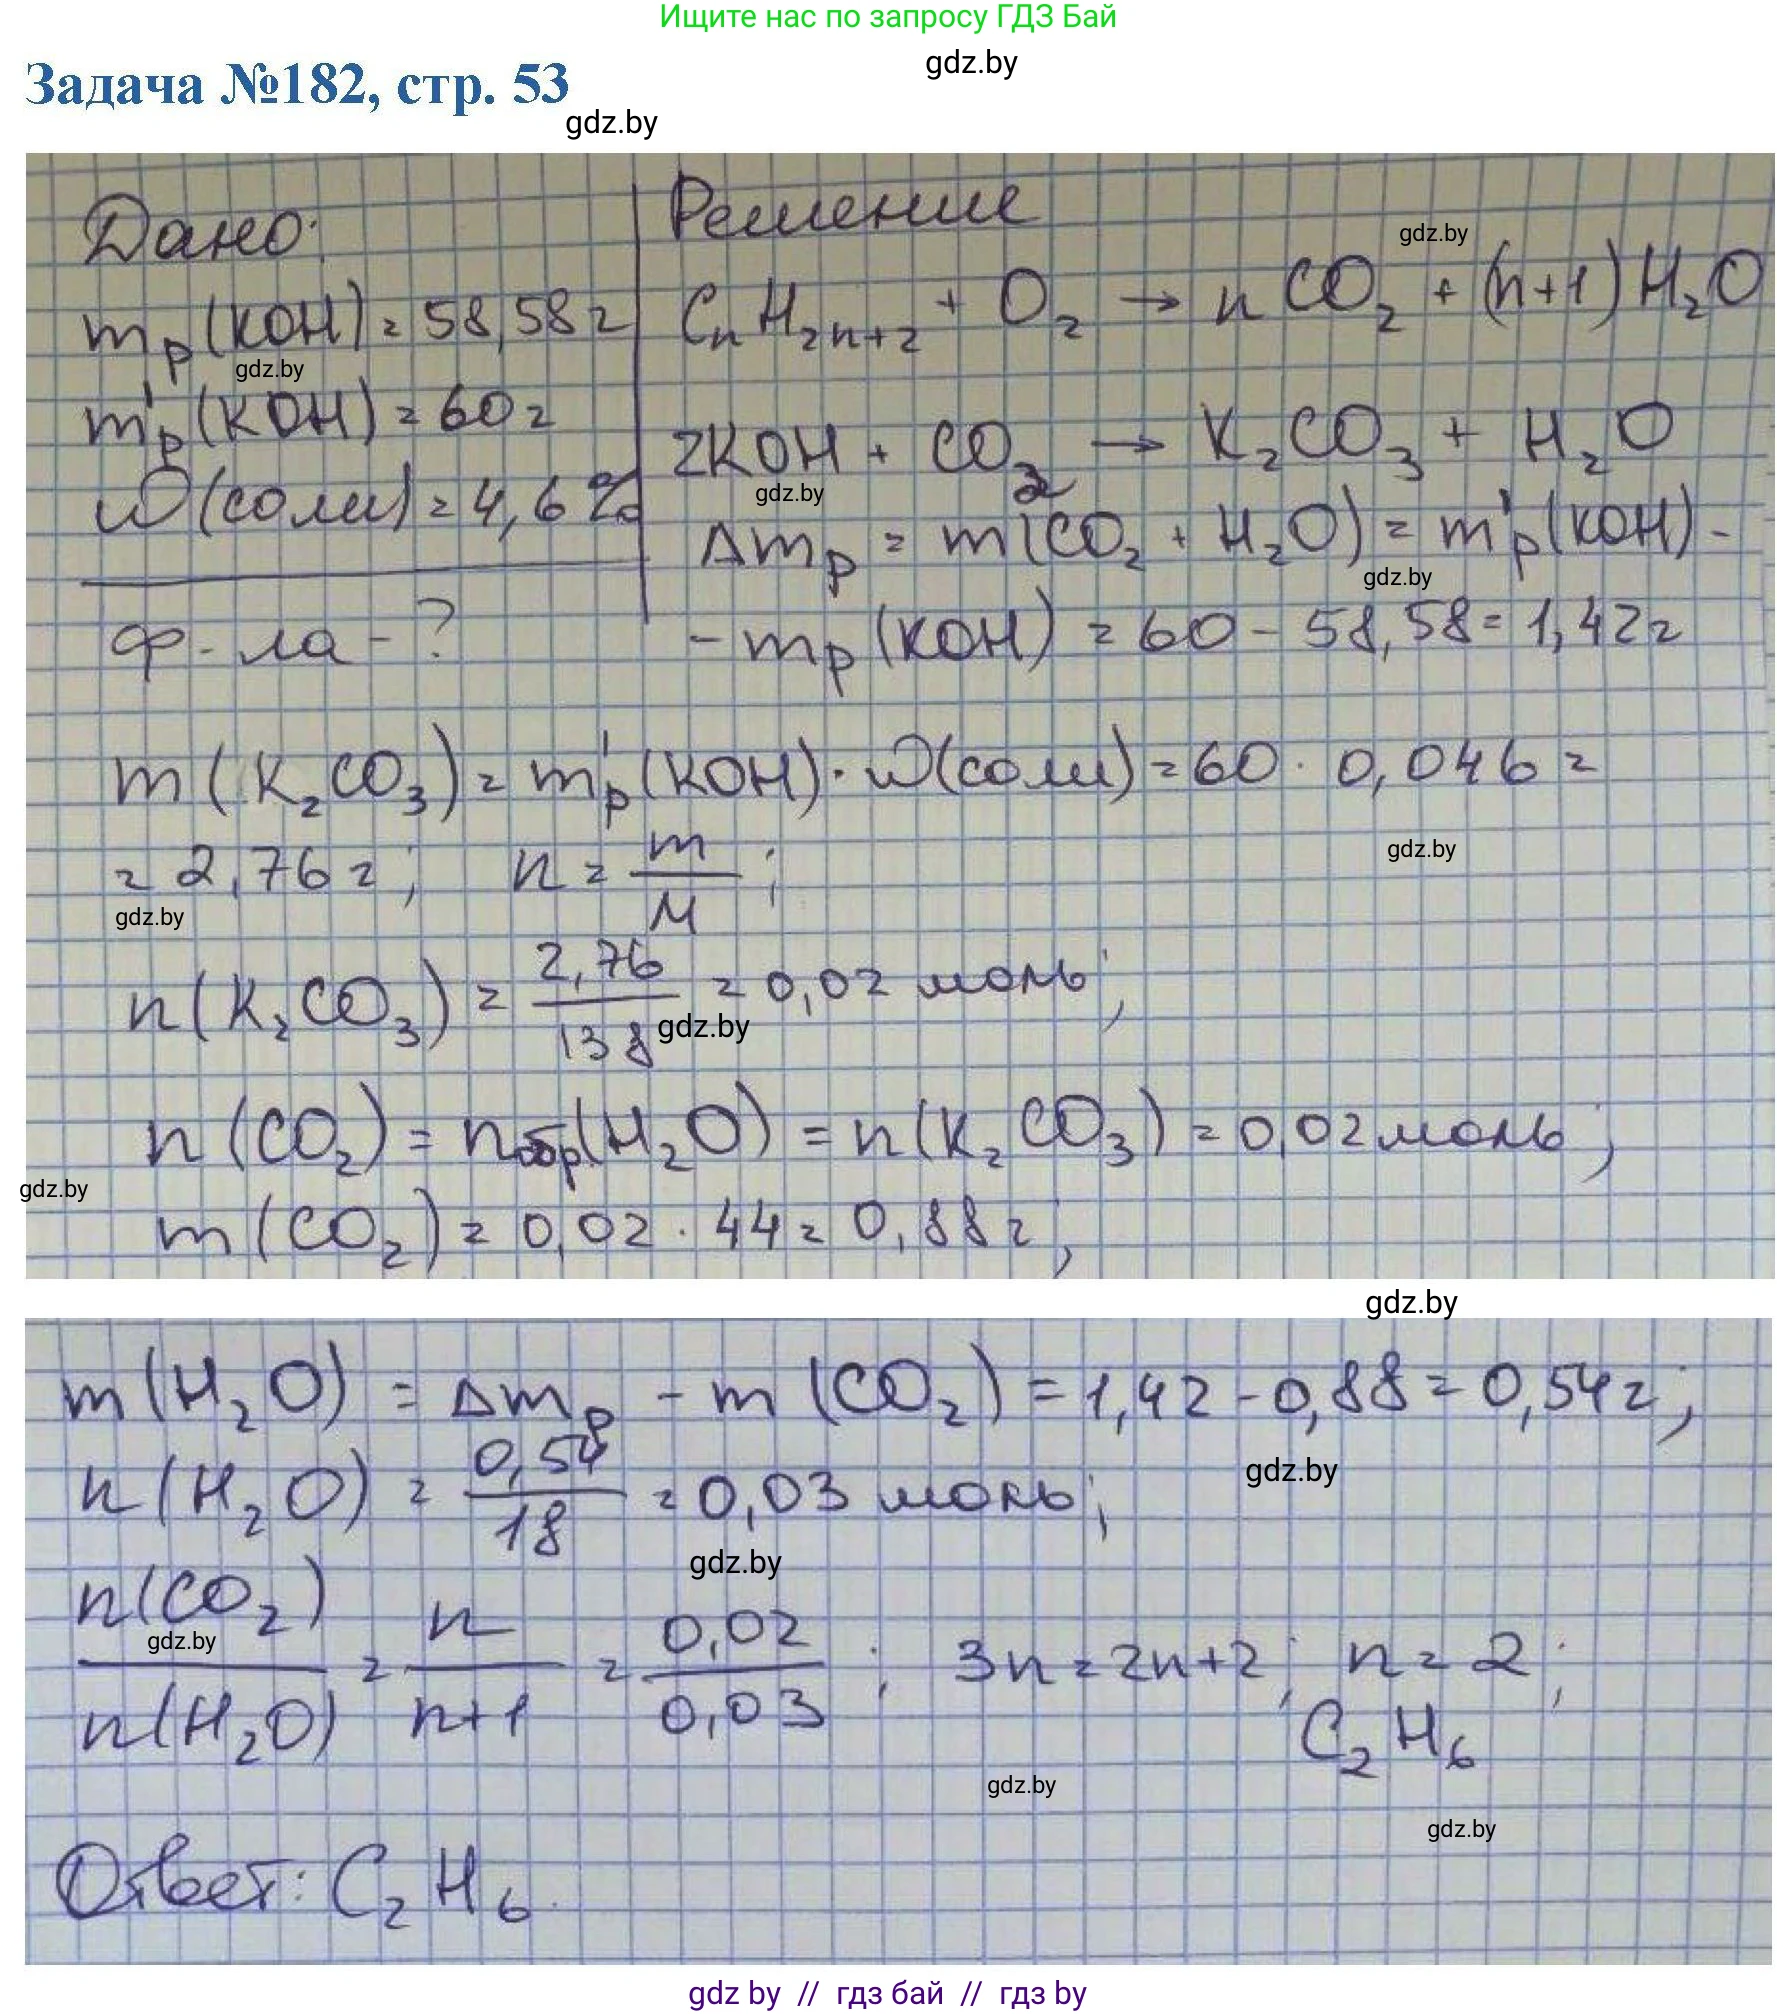 Ищите нас по запросу ГДЗ Бай
gdz.by
Задача №182, стр. 53
gdz.by
Дано:
mр(KOH) = 58,58 г
gdz.by
m'р(KOH) = 60 г
ω(соли) = 4,6 %
ф-ла - ?
Решение
gdz.by
CnH2n+2 + O2 → nCO2 + (n+1)H2O
2KOH + CO2 → K2CO3 + H2O
gdz.by
Δmр = m(CO2 + H2O) = m'р(KOH) -
gdz.by
- mр(KOH) = 60 - 58,58 = 1,42 г
m(K2CO3) = m'р(KOH) · ω(соли) = 60 · 0,046 =
gdz.by
= 2,76 г; n = m/M;
gdz.by
n(K2CO3) = 2,76/138 = 0,02 моль;
gdz.by
n(CO2) = nобр(H2O) = n(K2CO3) = 0,02 моль;
gdz.by
m(CO2) = 0,02 · 44 = 0,88 г;
gdz.by
m(H2O) = Δmр - m(CO2) = 1,42 - 0,88 = 0,54 г;
gdz.by
n(H2O) = 0,54/18 = 0,03 моль;
gdz.by
n(CO2)/n(H2O) = n/n+1 = 0,02/0,03; 3n = 2n+2; n = 2;
gdz.by
C2H6
gdz.by
gdz.by
Ответ: C2H6.
gdz by // гдз бай // гдз by